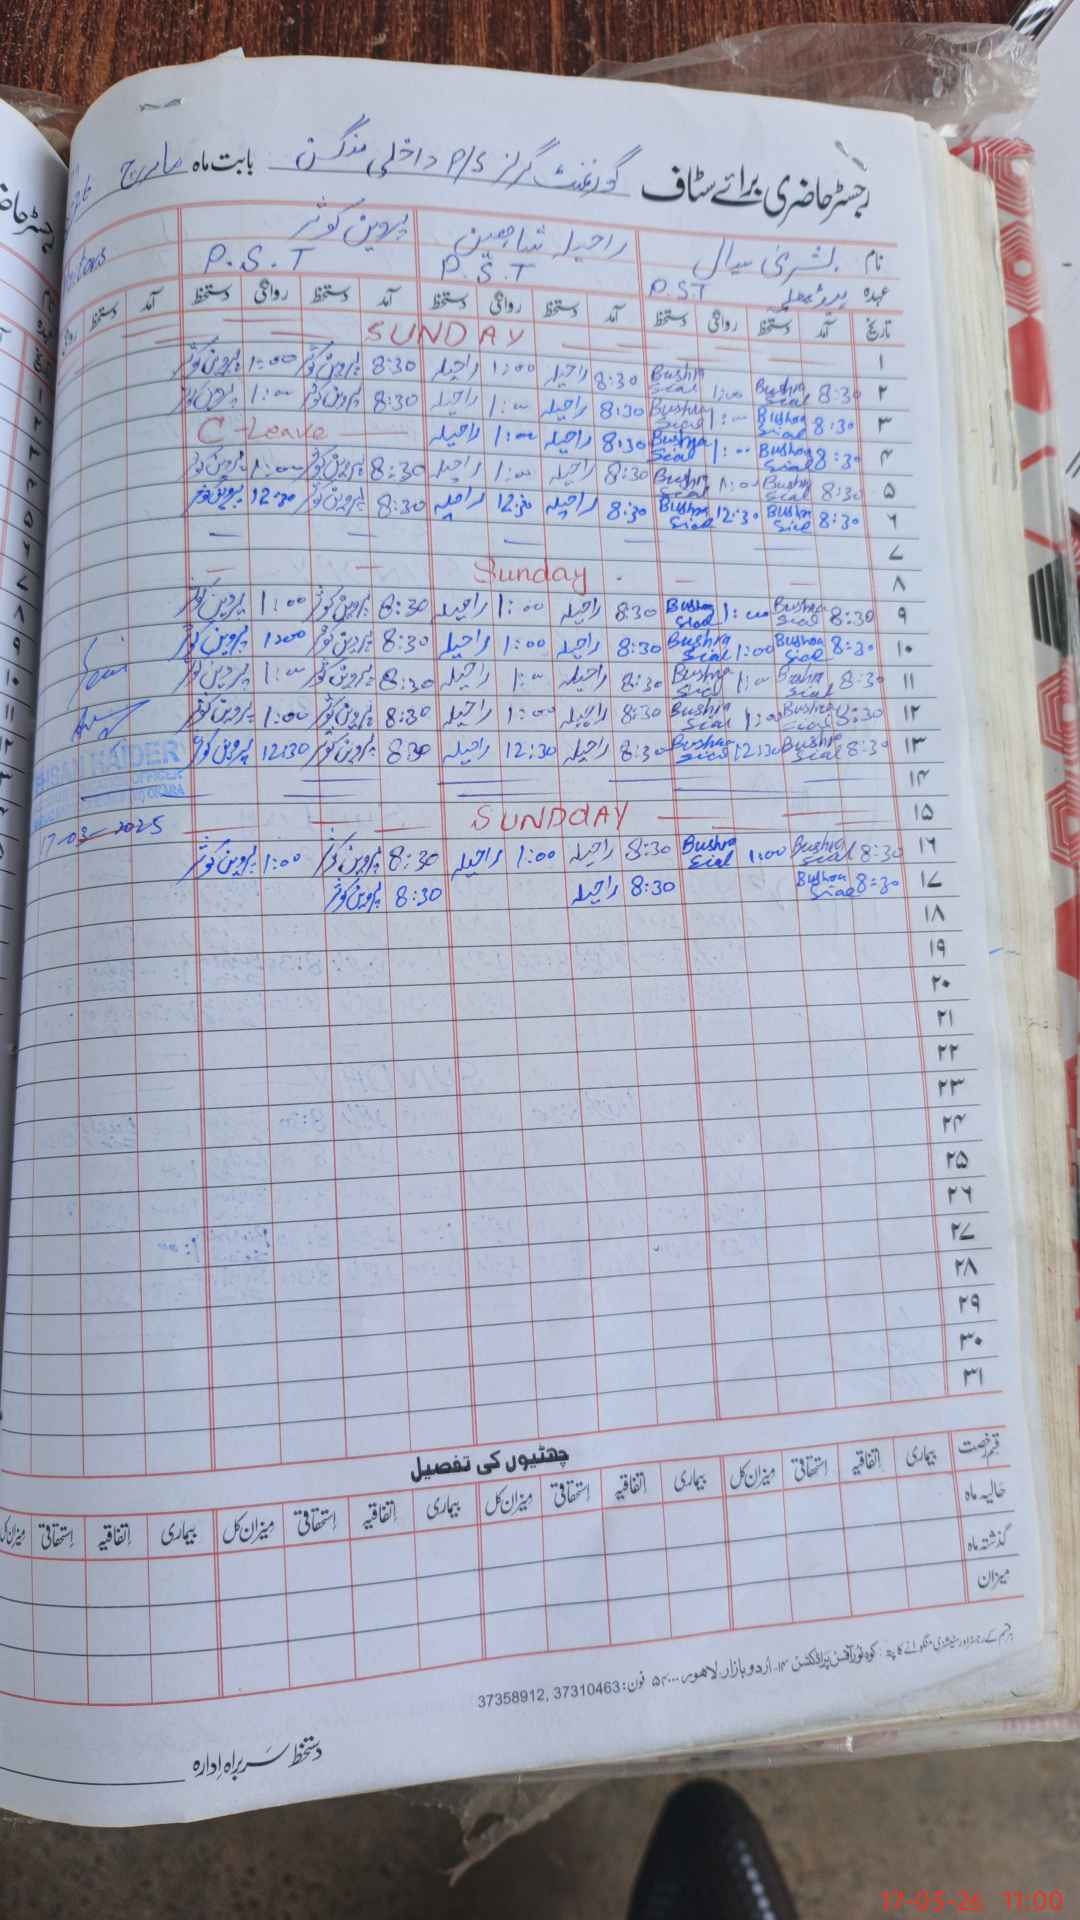 رجسٹر حاضری برائے سٹاف گورنمنٹ گرلز P/S داخلی بابت ماہ مارچ
نام بشریٰ سیال راحیلہ شاہین پروین کوثر
عہدہ P.S.T P.S.T P.S.T
تاریخ آمد دستخط روانگی دستخط آمد دستخط روانگی دستخط آمد دستخط روانگی دستخط آمد دستخط
۱ SUNDAY
۲ 8:30 Bushra Sial 1:00 Bushra Sial 8:30 راحیلہ 1:00 راحیلہ 8:30 پروین کوثر 1:00 پروین کوثر
۳ 8:30 Bushra Sial 1:00 Bushra Sial 8:30 راحیلہ 1:00 راحیلہ 8:30 پروین کوثر 1:00 پروین کوثر
۴ 8:30 Bushra Sial 1:00 Bushra Sial 8:30 راحیلہ 1:00 راحیلہ C-Leave
۵ 8:30 Bushra Sial 1:00 Bushra Sial 8:30 راحیلہ 1:00 راحیلہ 8:30 پروین کوثر 1:00 پروین کوثر
۶ 8:30 Bushra Sial 12:30 Bushra Sial 8:30 راحیلہ 12:30 راحیلہ 8:30 پروین کوثر 12:30 پروین کوثر
۷
۸ Sunday
۹ 8:30 Bushra Sial 1:00 Bushra Sial 8:30 راحیلہ 1:00 راحیلہ 8:30 پروین کوثر 1:00 پروین کوثر
۱۰ 8:30 Bushra Sial 1:00 Bushra Sial 8:30 راحیلہ 1:00 راحیلہ 8:30 پروین کوثر 1:00 پروین کوثر
۱۱ 8:30 Bushra Sial 1:00 Bushra Sial 8:30 راحیلہ 1:00 راحیلہ 8:30 پروین کوثر 1:00 پروین کوثر
۱۲ 8:30 Bushra Sial 1:00 Bushra Sial 8:30 راحیلہ 1:00 راحیلہ 8:30 پروین کوثر 1:00 پروین کوثر
۱۳ 8:30 Bushra Sial 12:30 Bushra Sial 8:30 راحیلہ 12:30 راحیلہ 8:30 پروین کوثر 12:30 پروین کوثر
HAIDER
۱۴
۱۵ SUNDAY
17-03-2025
۱۶ 8:30 Bushra Sial 1:00 Bushra Sial 8:30 راحیلہ 1:00 راحیلہ 8:30 پروین کوثر 1:00 پروین کوثر
۱۷ 8:30 Bushra Sial 8:30 راحیلہ 8:30 پروین کوثر
۱۸
۱۹
۲۰
۲۱
۲۲
۲۳
۲۴
۲۵
۲۶
۲۷
۲۸
۲۹
۳۰
۳۱
چھٹیوں کی تفصیل
قسم رخصت بیماری اتفاقیہ استحقاقی میزان کل بیماری اتفاقیہ استحقاقی میزان کل بیماری اتفاقیہ استحقاقی میزان کل بیماری اتفاقیہ استحقاقی میزان کل
حالیہ ماہ
گذشتہ ماہ
میزان
اردو بازار لاہور فون: 37358912, 37310463
دستخط سربراہ ادارہ
17-03-26 11:00